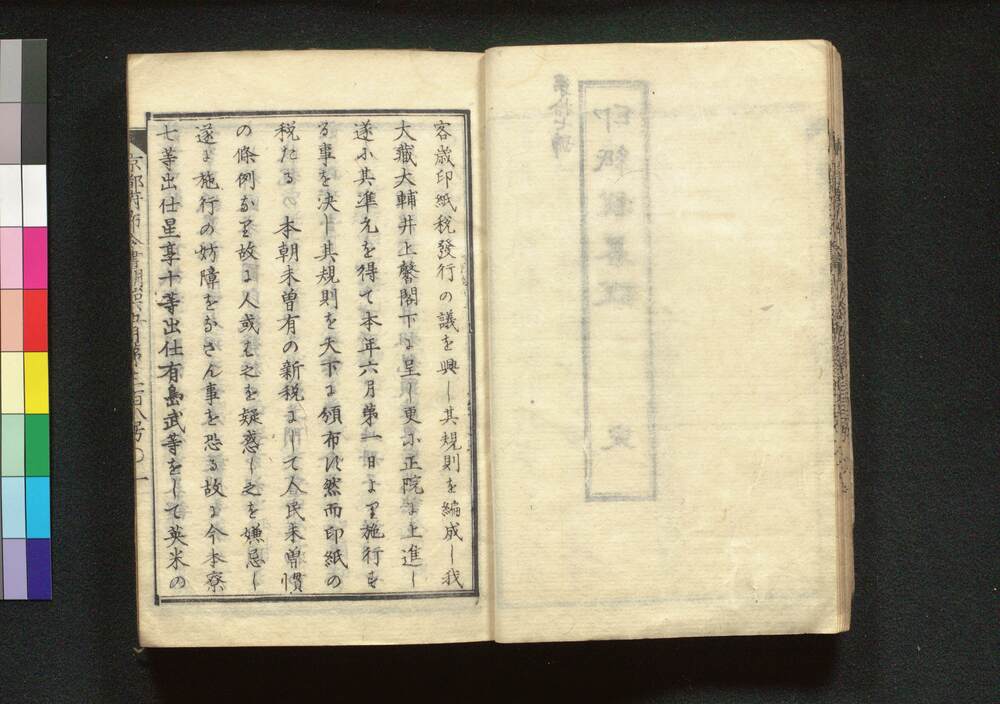 客歳印紙税發行の議を興し其規則を編成し我
大藏大輔井上馨閣下に呈し更に正院に上進し
遂に其準允を得て本年六月第一日より施行す
る事を決し其規則を天下に頒布す然而印紙の
税たるの本朝未曽有の新税にして人民未曽慣
の條例なり故に人或も之を疑惑し之を嫌忌し
遂に施行の妨障をなさん事を恐る故に今本寮
七等出仕星亨十等出仕有島武等をして英米の
京都府
月第二百八号